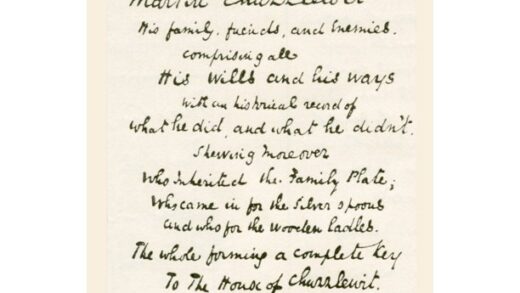 Martin Chuzzlewit
His family, friends, and Enemies.
comprising all
His Wills and his ways
with an historical record of
what he did, and what he didn't.
Shewing moreover
Who Inherited the Family Plate;
Who came in for the Silver spoons
and who for the Wooden ladles.
The whole forming a complete Key
To The House of Chuzzlewit.